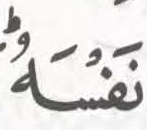 نَفْسَهٗؕ